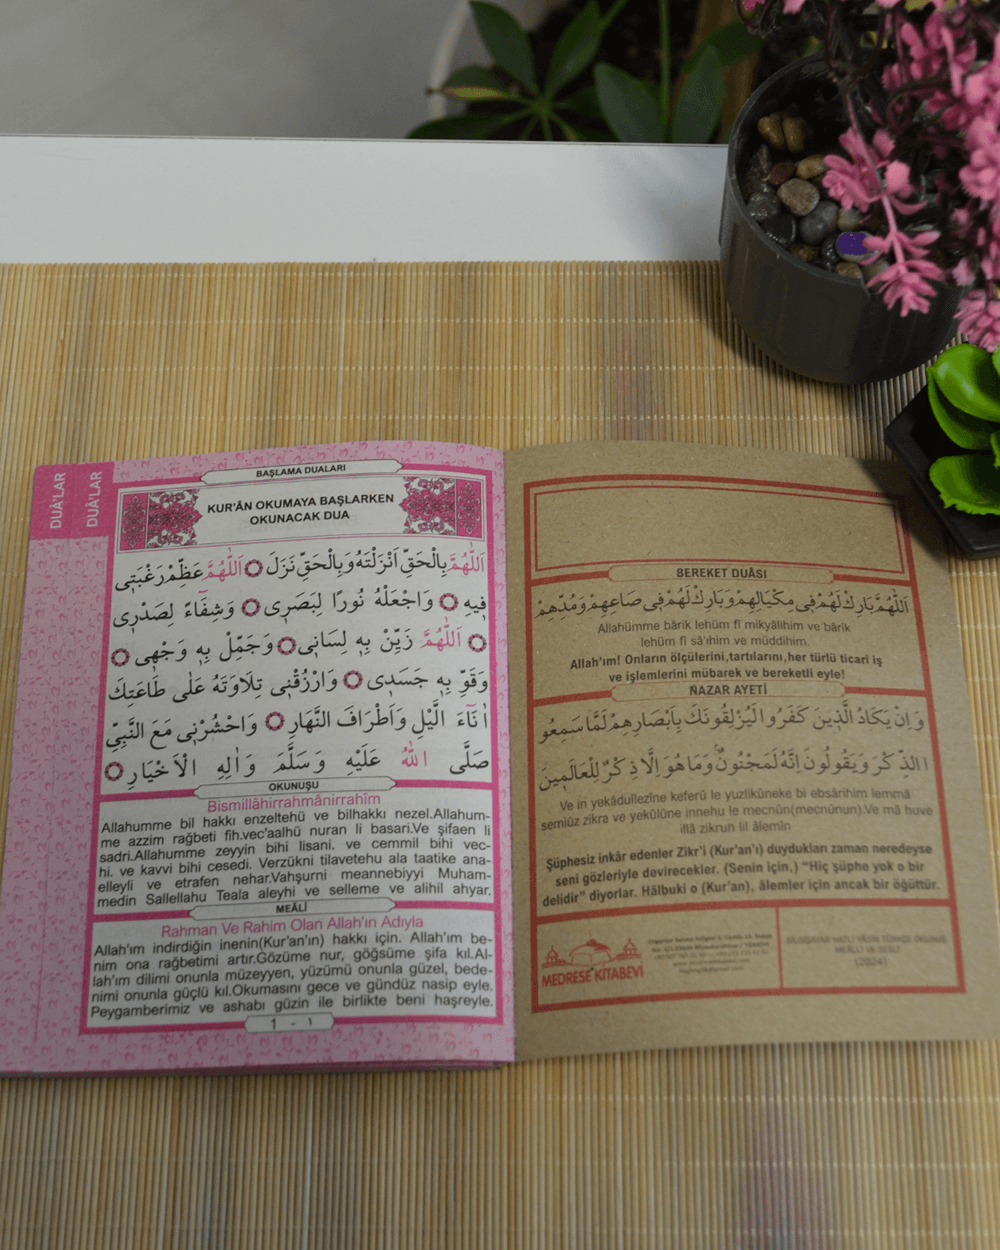 DUÂ'LAR
DUÂ'LAR
BAŞLAMA DUALARI
KUR'ÂN OKUMAYA BAŞLARKEN
OKUNACAK DUA
اَللّٰهُمَّ بِالْحَقِّ اَنْزَلْتَهُ وَبِالْحَقِّ نَزَلَ اَللّٰهُمَّ عَظِّمْ رَغْبَتٖى
فٖيهِ وَاجْعَلْهُ نُورًا لِبَصَرٖى وَشِفَٓاءً لِصَدْرٖى
اَللّٰهُمَّ زَيِّنْ بِهٖ لِسَانٖى وَجَمِّلْ بِهٖ وَجْهٖى
وَقَوِّ بِهٖ جَسَدٖى وَارْزُقْنٖى تِلَاوَتَهُ عَلٰى طَاعَتِكَ
اٰنَٓاءَ الَّيْلِ وَاَطْرَافَ النَّهَارِ وَاحْشُرْنٖى مَعَ النَّبِىِّ
صَلَّى اللّٰهُ عَلَيْهِ وَسَلَّمَ وَاٰلِهِ الْاَخْيَارِ
OKUNUŞU
Bismillâhirrahmânirrahîm
Allahumme bil hakkı enzeltehü ve bilhakkı nezel.Allahum-
me azzim rağbeti fih.vec'aalhü nuran li basari.Ve şifaen li
sadri.Allahumme zeyyin bihi lisani. ve cemmil bihi vec-
hi. ve kavvi bihi cesedi. Verzükni tilavetehu ala taatike ana-
elleyli ve etrafen nehar.Vahşurni meannebiyyi Muham-
medin Sallellahu Teala aleyhi ve selleme ve alihil ahyar.
MEÂLİ
Rahman Ve Rahim Olan Allah'ın Adıyla
Allah'ım indirdiğin inenin(Kur'an'ın) hakkı için. Allah'ım be-
nim ona rağbetimi artır.Gözüme nur, göğsüme şifa kıl.Al-
lah'ım dilimi onunla müzeyyen, yüzümü onunla güzel, bede-
nimi onunla güçlü kıl.Okumasını gece ve gündüz nasip eyle.
Peygamberimiz ve ashabı güzin ile birlikte beni haşreyle.
1 - ١
BEREKET DUÂSI
اَللّٰهُمَّ بَارِكْ لَهُمْ فٖى مِكْيَالِهِمْ وَبَارِكْ لَهُمْ فٖى صَاعِهِمْ وَمُدِّهِمْ
Allahümme bârik lehüm fî mikyâlihim ve bârik
lehüm fî sâ'ıhim ve müddihim.
Allah'ım! Onların ölçülerini,tartılarını,her türlü ticari iş
ve işlemlerini mübarek ve bereketli eyle!
NAZAR AYETİ
وَاِنْ يَكَادُ الَّذٖينَ كَفَرُوا لَيُزْلِقُونَكَ بِاَبْصَارِهِمْ لَمَّا سَمِعُو
ا الذِّكْرَ وَيَقُولُونَ اِنَّهُ لَمَجْنُونٌ وَمَا هُوَ اِلَّا ذِكْرٌ لِلْعَالَمٖينَ
Ve in yekâdullezîne keferû le yuzlikûneke bi ebsârihim lemmâ
semiûz zikra ve yekûlûne innehu le mecnûn(mecnûnun).Ve mâ huve
illâ zikrun lil âlemîn
Şüphesiz inkâr edenler Zikr'i (Kur'an'ı) duydukları zaman neredeyse
seni gözleriyle devirecekler. (Senin için,) "Hiç şüphe yok o bir
delidir" diyorlar. Hâlbuki o (Kur'an), âlemler için ancak bir öğüttür.
MEDRESE KİTABEVİ
BİLGİSAYAR HATLI YÂSİN TÜRKÇE OKUNUŞ
MEÂLLİ VE SESLİ
(2024)